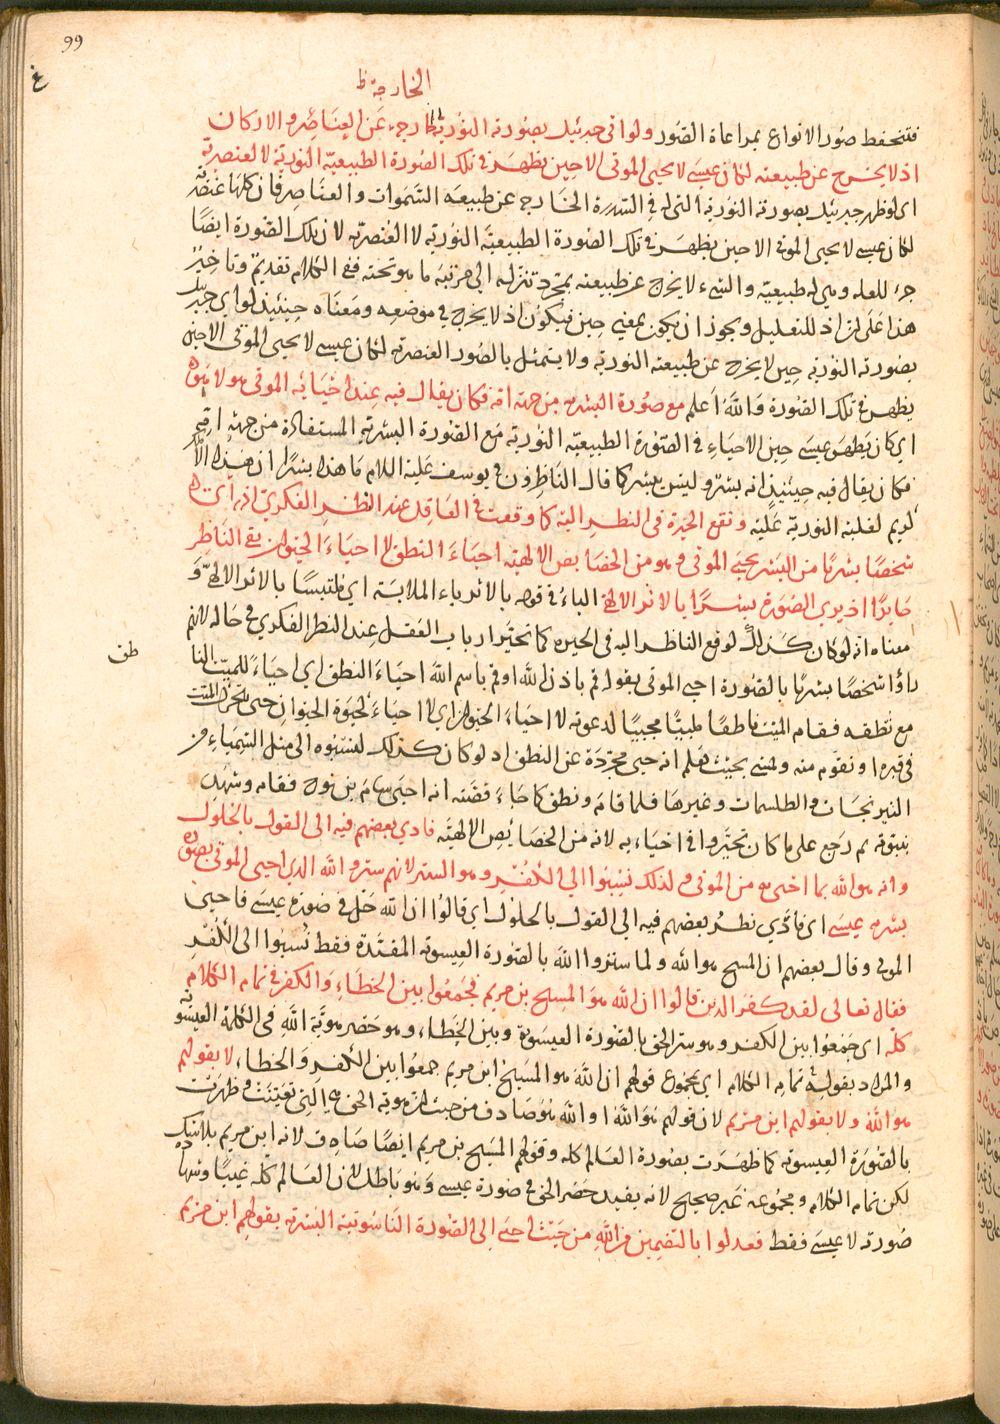 99
غ
الخارجة ظ
فتنحفظ صور الانواع بمراعاة الصور ولو اتى جبرئيل بصورته النورية الخارجة عن العناصر والاركان
اذ لا يخرج عن طبيعته لكان عيسى لا يحيى الموتى الا حين يظهر في تلك الصورة الطبيعية النورية لا العنصرية
اى لو ظهر جبرئيل بصورته النورية التى له في السدرة الخارجة عن طبيعة السموات والعناصر فان كلها عنصرية
لكان عيسى لا يحيى الموتى الا حين يظهر في تلك الصورة الطبيعية النورية لا العنصرية لان تلك الصورة ايضا
جزء للعلة وهى له طبيعية والشىء لا يخرج عن طبيعته بمجرد تنزله الى مرتبة ما هو تحته ففى الكلام تقديم وتاخير
هذا على ان اذ للتعليل ويجوز ان يكون بمعنى حين فيكون اذ لا يخرج في موضعه ومعناه حينئذ لو اتى جبرئيل
بصورته النورية حين لا يخرج عن طبيعته النورية ولا يتمثل بالصور العنصرية لكان عيسى لا يحيى الموتى الا حين
يظهر في تلك الصورة والله اعلم مع صورة البشرية من جهة امه فكان يقال فيه عند احيائه الموتى هو لا هو
اى كان يظهر عيسى حين الاحياء في الصورة الطبيعية النورية مع الصورة البشرية المستفادة من جهة امه
فكان يقال فيه حينئذ انه بشر وليس ببشر كما قال الناظرون في يوسف عليه السلام ما هذا بشرا ان هذا الا ملك
كريم لغلبة النورية عليه وتقع الحيرة في النظر اليه كما وقعت في العاقل عند النظر الفكرى اذ رأى
شخصا بشريا من البشر يحيى الموتى وهو من الخصايص الالهية احياء النطق لا احياء الحيوان بقى الناظر
حايرا اذ يرى الصورة بشرا بالاثر الالهى الباء في قوله بالاثر باء الملابسة اى ملتبسا بالاثر الالهى و
معناه انه لو كان كذلك لوقع الناظر اليه في الحيرة كما تحير ارباب العقل عند النظر الفكرى في حاله لانهم
راؤا شخصا بشريا بالصورة احيى الموتى بقوله قم باذن الله او قم باسم الله احياء النطق اى احياء للميت
مع نطقه فقام الميت ناطقا ملبيا مجيبا لدعوته لا احياء الحيوان اى لا احياء لحيوة الحيوان حتى يتحرك الميت
في قبره او يقوم منه ويمشى بحيث يعلم انه حى مجردة عن النطق اذ لو كان كذلك لنسبوه الى مثل السيمياء من
النيرنجات والطلسمات وغيرها فلما قام ونطق كما جاء قصته انه احيى سام بن نوح فقام وشهد
بنبوته ثم رجع على ما كان تحيروا في احياء به لانه من الخصايص الالهية فادى بعضهم فيه الى القول بالحلول
وانه هو الله بما احيى به من الموتى ولذلك نسبوا الى الكفر وهو الستر لانهم ستروا الله الذى احيى الموتى بصورة
بشرية عيسى اى فادى نظر بعضهم فيه الى القول بالحلول اى قالوا ان الله حل في صورة عيسى فاحيى
الموتى وقال بعضهم ان المسيح هو الله ولما ستروا الله بالصورة العيسوية المقيدة فقط نسبوا الى الكفر
فقال تعالى لقد كفر الذين قالوا ان الله هو المسيح بن مريم فجمعوا بين الخطاء والكفر في تمام الكلام
كله اى جمعوا بين الكفر وهو ستر الحق بالصورة العيسوية وبين الخطاء وهو حصر هوية الله في الكلمة العيسوية
والمراد بقوله تمام الكلام اى بمجموع قولهم ان الله هو المسيح ابن مريم جمعوا بين الكفر والخطاء لا بقولهم
هو الله ولا بقولهم ابن مريم لان قولهم هو الله او الله هو صادق من حيث ان هوية الحق هى التى تعينت وظهرت
بالصورة العيسوية كما ظهرت بصورة العالم كله وقولهم المسيح بن مريم ايضا صادق لانه ابن مريم بلا شك
لكن تمام الكلام ومجموعه غير صحيح لانه يفيد حصر الحق في صورة عيسى وهو باطل لان العالم كله غيبا وشهادة
صورته لا عيسى فقط فعدلوا بالتضمين من الله من حيث احيى الى الصورة الناسوتية البشرية بقولهم ابن مريم